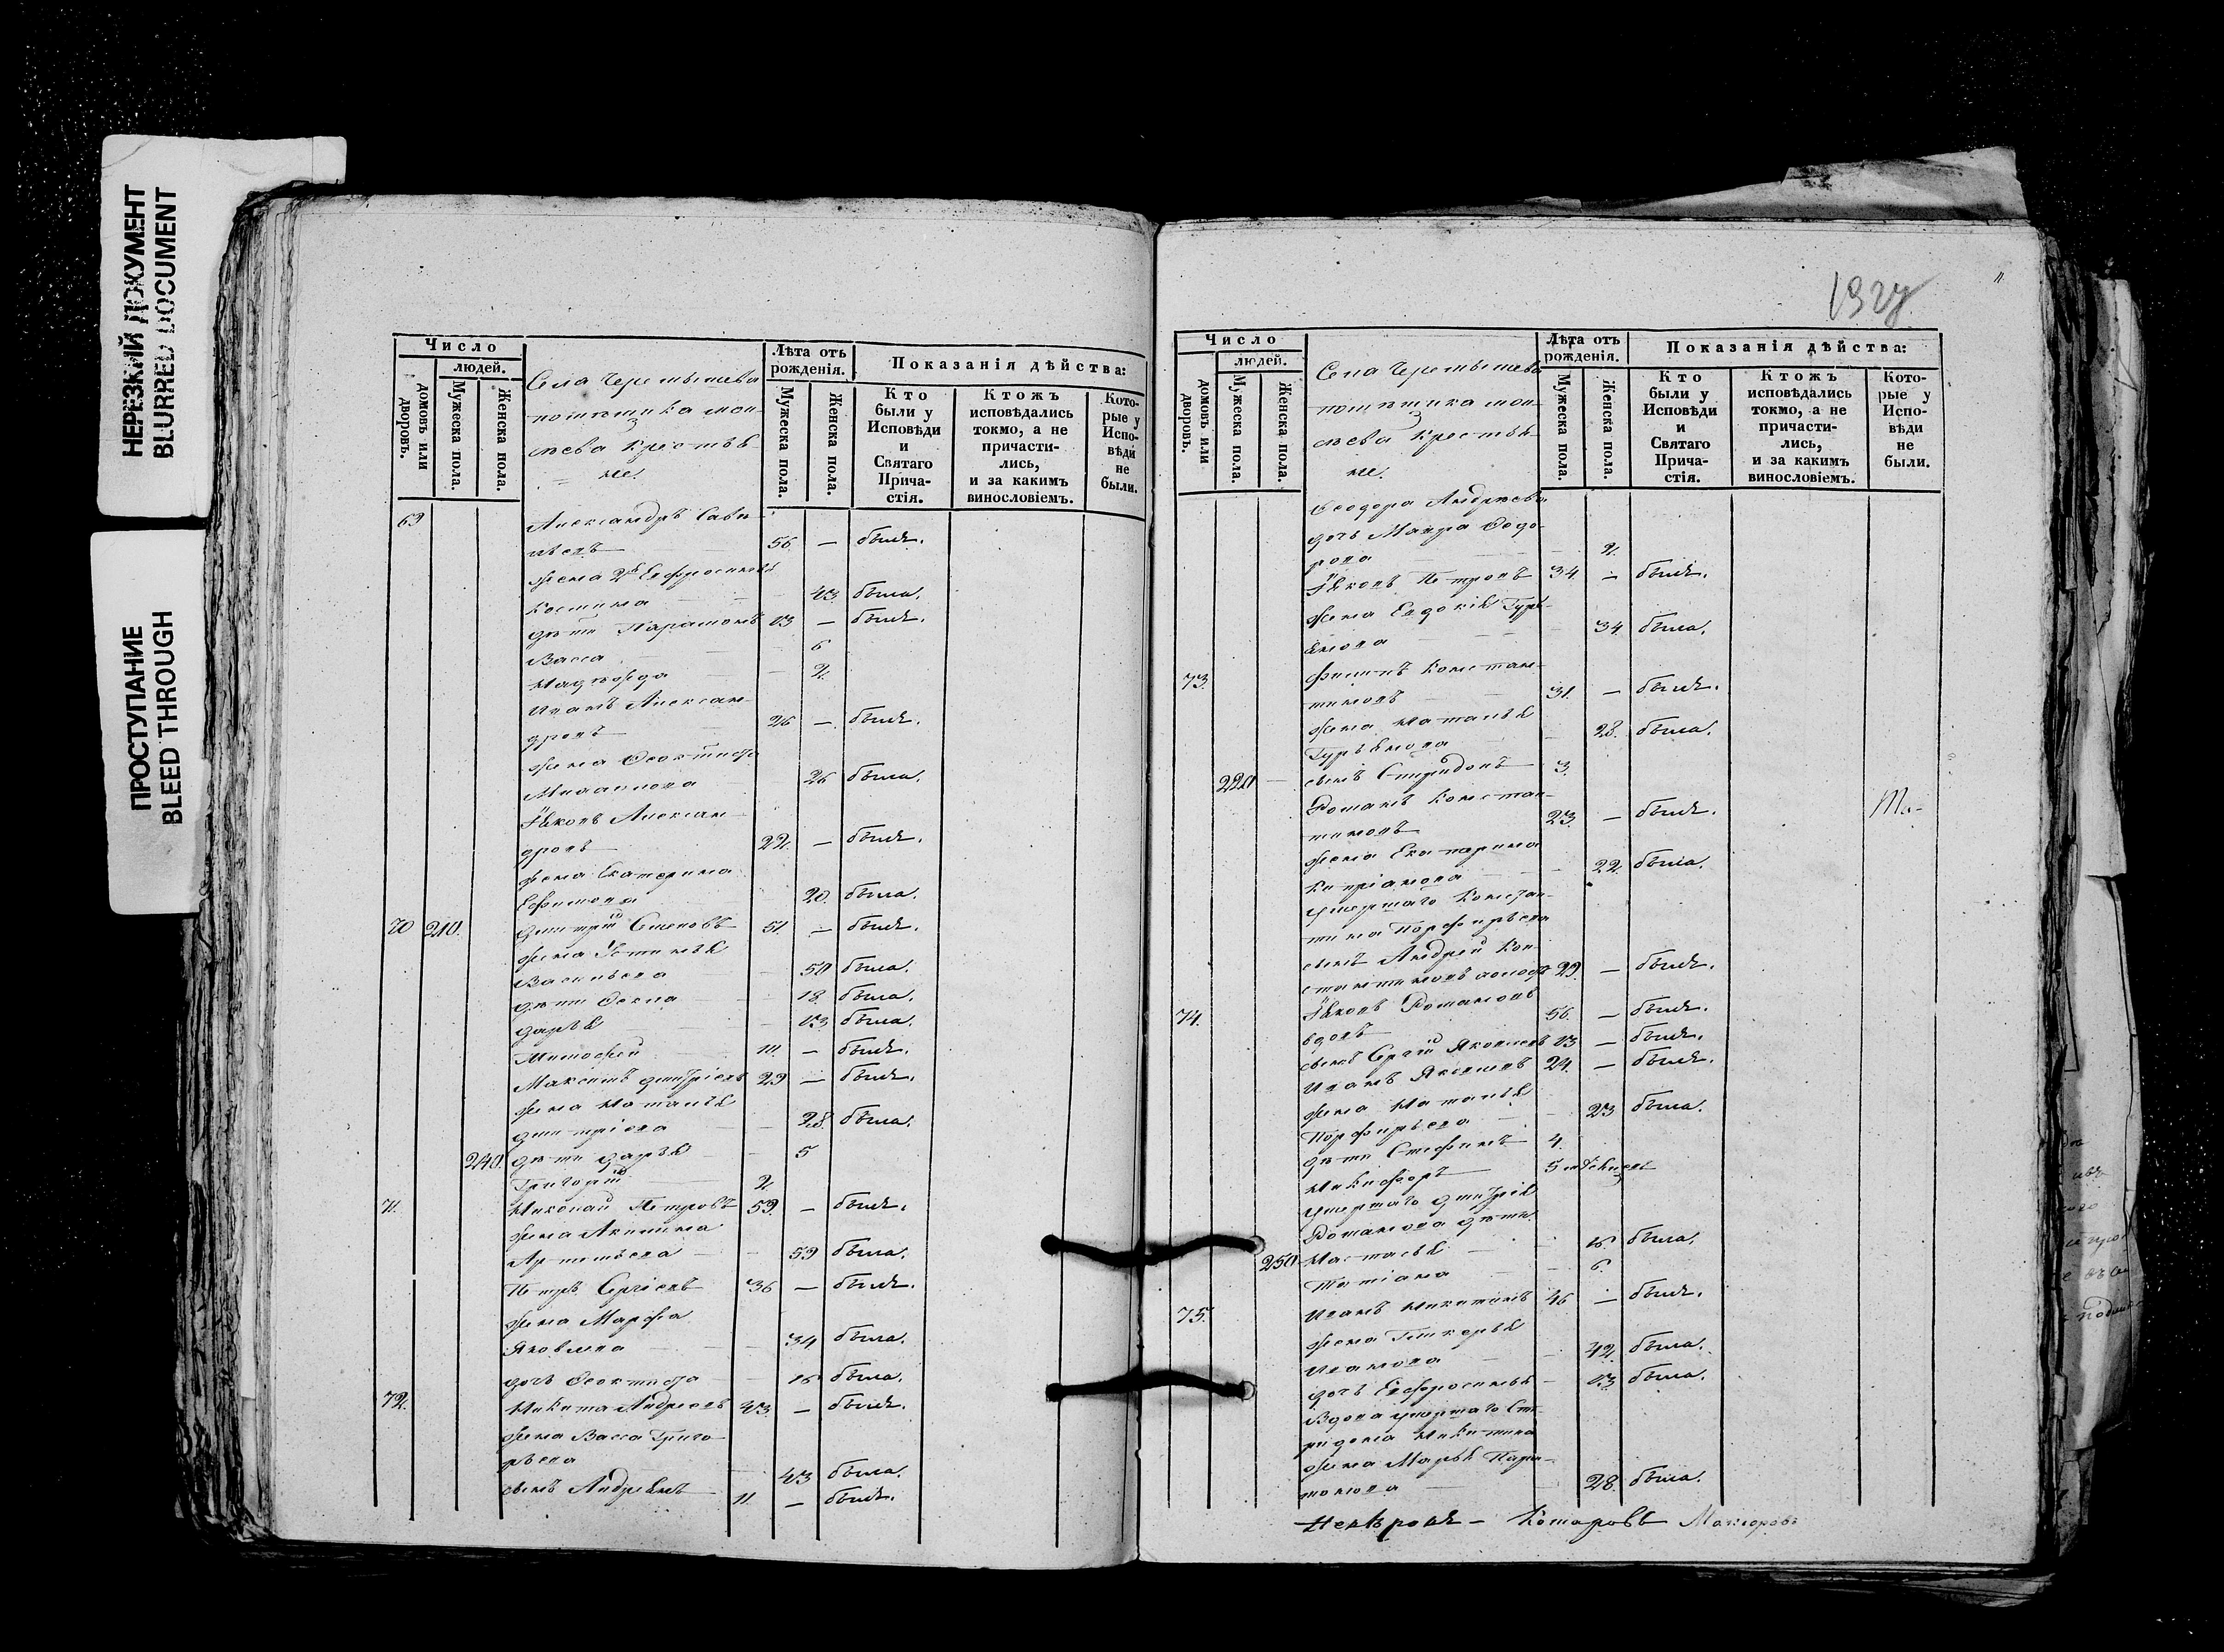 НЕРЕЗКИЙ ДОКУМЕНТ
BLURRED DOCUMENT
ПРОСТУПАНИЕ
BLEED THROUGH
Число
людей.
домовъ или дворовъ.
Мужеска пола.
Женска пола.
Села Черемышева
помѣщика
крестья-
не.
Лѣта отъ рожденія.
Мужеска пола.
Женска пола.
Показанія дѣйства:
Кто были у Исповѣди и Святаго Прича-стія.
Ктожъ исповѣдались токмо, а не причасти-лись, и за какимъ винословіемъ.
Кото-рые у Испо-вѣди не были.
69 Александръ Саве-
льевъ 56 — былъ.
жена 2я Евфросинія
Костина 43 была.
дѣти Парамонъ 13 — былъ.
Васса 6
Надежда 2
Иванъ Алексан-
дровъ 26 — былъ.
жена Феоктиста
26 была.
Яковъ Алексан-
дровъ 22 — былъ.
жена Екатерина
Ефимова 20 была.
70 210. Димитрій 51 — былъ.
жена Устинья
Васильева 50 была.
дѣти Фекла 18 была.
Дарья 13 была.
Тимофей — былъ.
Максимъ Дмитріевъ 29 — былъ.
жена Наталья
Дмитріева 28 была.
240. дѣти Дарья 5
Григорій 2
71. Николай Петровъ 59 — былъ.
жена Акилина
Артемьева 59 была.
Петръ Сергіевъ 36 — былъ.
жена Марфа
Яковлева 34 была.
дочь Феоктиста 16 была.
72. Никита Андреевъ 43 — былъ.
жена Васса Григо-
рьева 43 была.
сынъ Андреянъ 11 — былъ.
132
Число
людей.
домовъ или дворовъ.
Мужеска пола.
Женска пола.
Села Черемышева
помѣщика
крестья-
не.
Лѣта отъ рожденія.
Мужеска пола.
Женска пола.
Показанія дѣйства:
Кто были у Исповѣди и Святаго Прича-стія.
Ктожъ исповѣдались токмо, а не причасти-лись, и за какимъ винословіемъ.
Кото-рые у Испо-вѣди не были.
Феодора Андреева
дочь Мавра Федо-
рова 2
Яковъ Петровъ 34 — былъ.
жена Евдокія Гурь-
янова 34 была.
73. Филипъ Констан-
тиновъ 31. — былъ.
жена Наталья
Гурьянова 28. была.
220 сынъ Спиридонъ 3.
Романъ Констан-
тиновъ 23. — былъ.
жена Екатерина
Кипріанова 22. была.
умершаго Констан-
тина Порфирьева
сынъ Андрей Кон-
стантиновъ 29. — былъ.
74. Яковъ Романовъ
вдовъ 56. — былъ.
сынъ Сергій Яковлевъ 13 — былъ.
Иванъ Яковлевъ 24. — былъ.
жена Наталья
Порфирьева 23 была.
дѣти Стефанъ 4.
Никифоръ 5
умершаго Дмитрія
Романова дѣти
250 Настасья 16. была.
Татіана 6.
75. Иванъ Никитинъ 46 — былъ.
жена Гликерья
Иванова 42. была.
дочь Евфросинья 13. была.
Вдова умершаго Спи-
ридона Никитина
жена Марья Пара-
монова 28. была.
Комаровъ